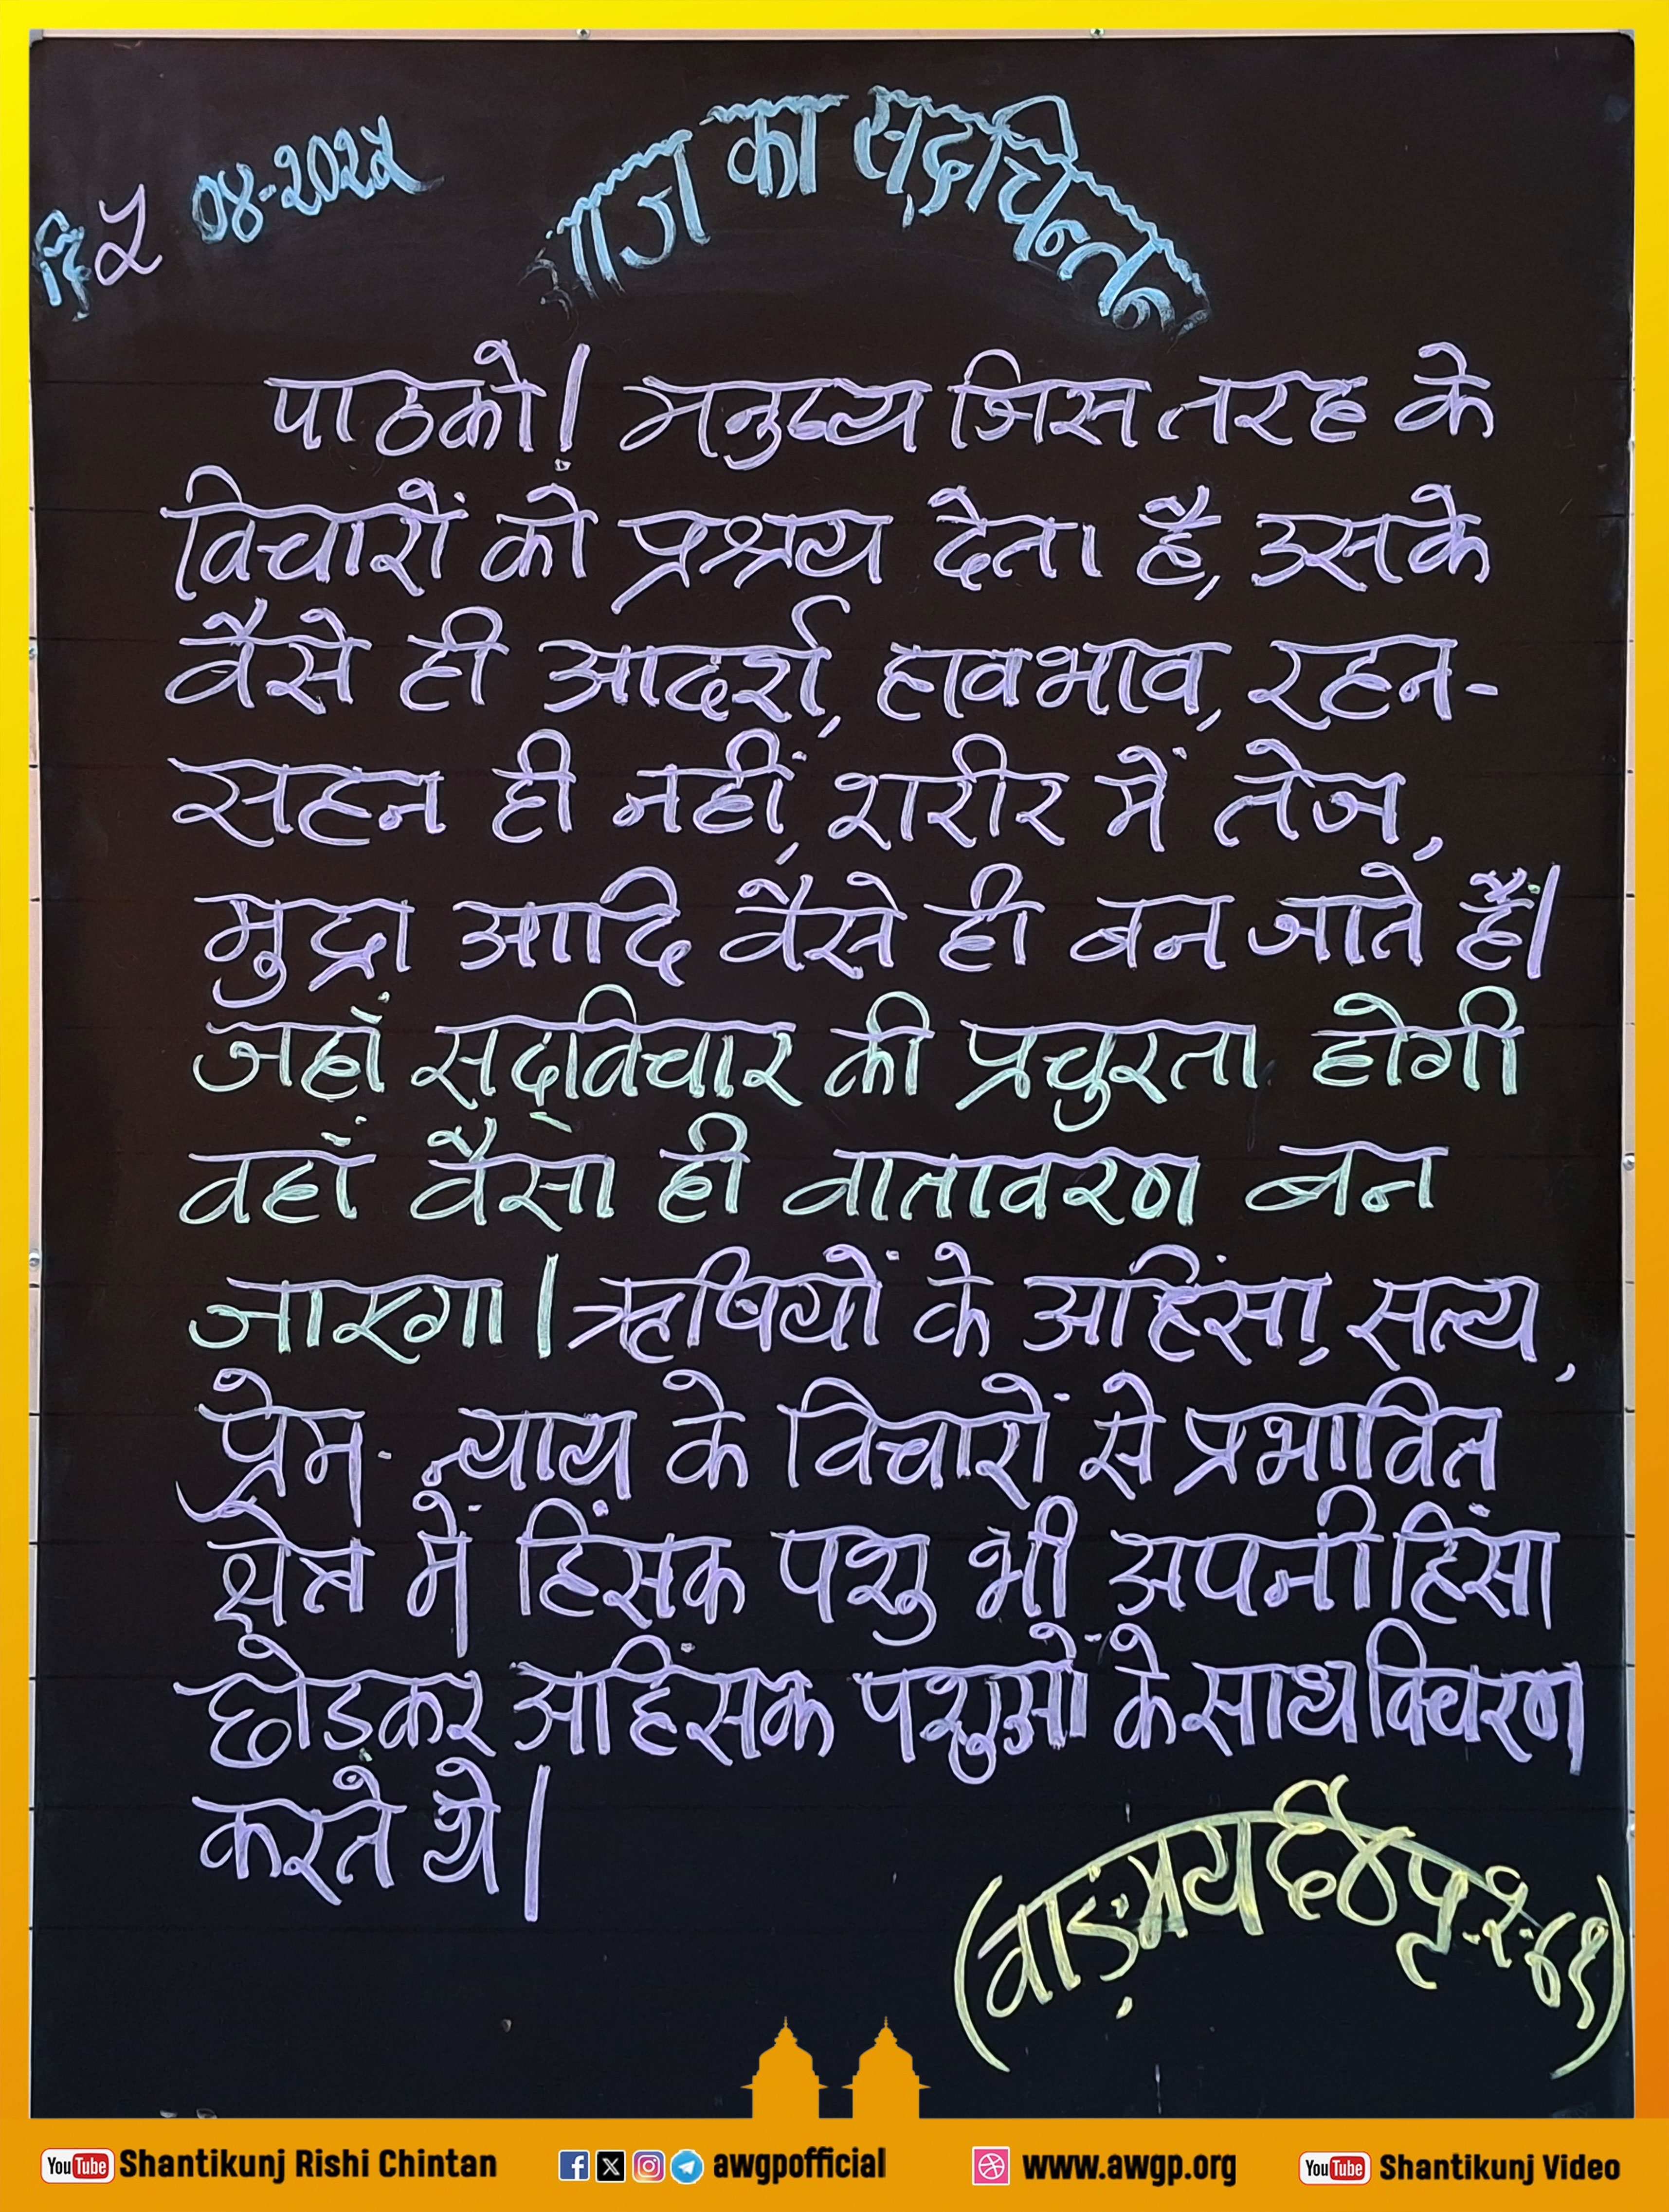 दि ५ ०४-२०२५
आज का सद्चिन्तन
पाठको! मनुष्य जिस तरह के
विचारों को प्रश्रय देता है, उसके
वैसे ही आदर्श, हावभाव, रहन-
सहन ही नहीं, शरीर में तेज,
मुद्रा आदि वैसे ही बन जाते हैं।
जहाँ सद्विचार की प्रचुरता होगी
वहाँ वैसा ही वातावरण बन
जाएगा। ऋषियों के अहिंसा, सत्य,
प्रेम-न्याय के विचारों से प्रभावित
क्षेत्र में हिंसक पशु भी अपनी हिंसा
छोड़कर अहिंसक पशुओं के साथ विचरण
करते थे।
(वाङ्मय ६४ पृ.-१.४१)
YouTube Shantikunj Rishi Chintan awgpofficial www.awgp.org YouTube Shantikunj Video